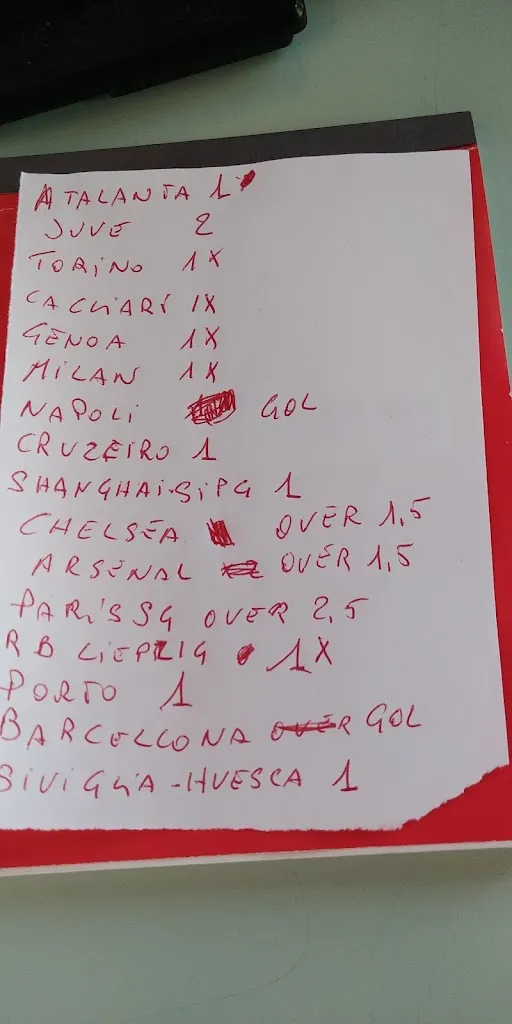 ATALANTA 1
JUVE 2
TORINO 1X
CAGLIARI 1X
GENOA 1X
MILAN 1X
NAPOLI GOL
CRUZEIRO 1
SHANGHAI-SIPG 1
CHELSEA OVER 1,5
ARSENAL OVER 1,5
PARISSG OVER 2,5
RB LIEPZIG 1X
PORTO 1
BARCELLONA OVER GOL
SIVIGLIA-HUESCA 1